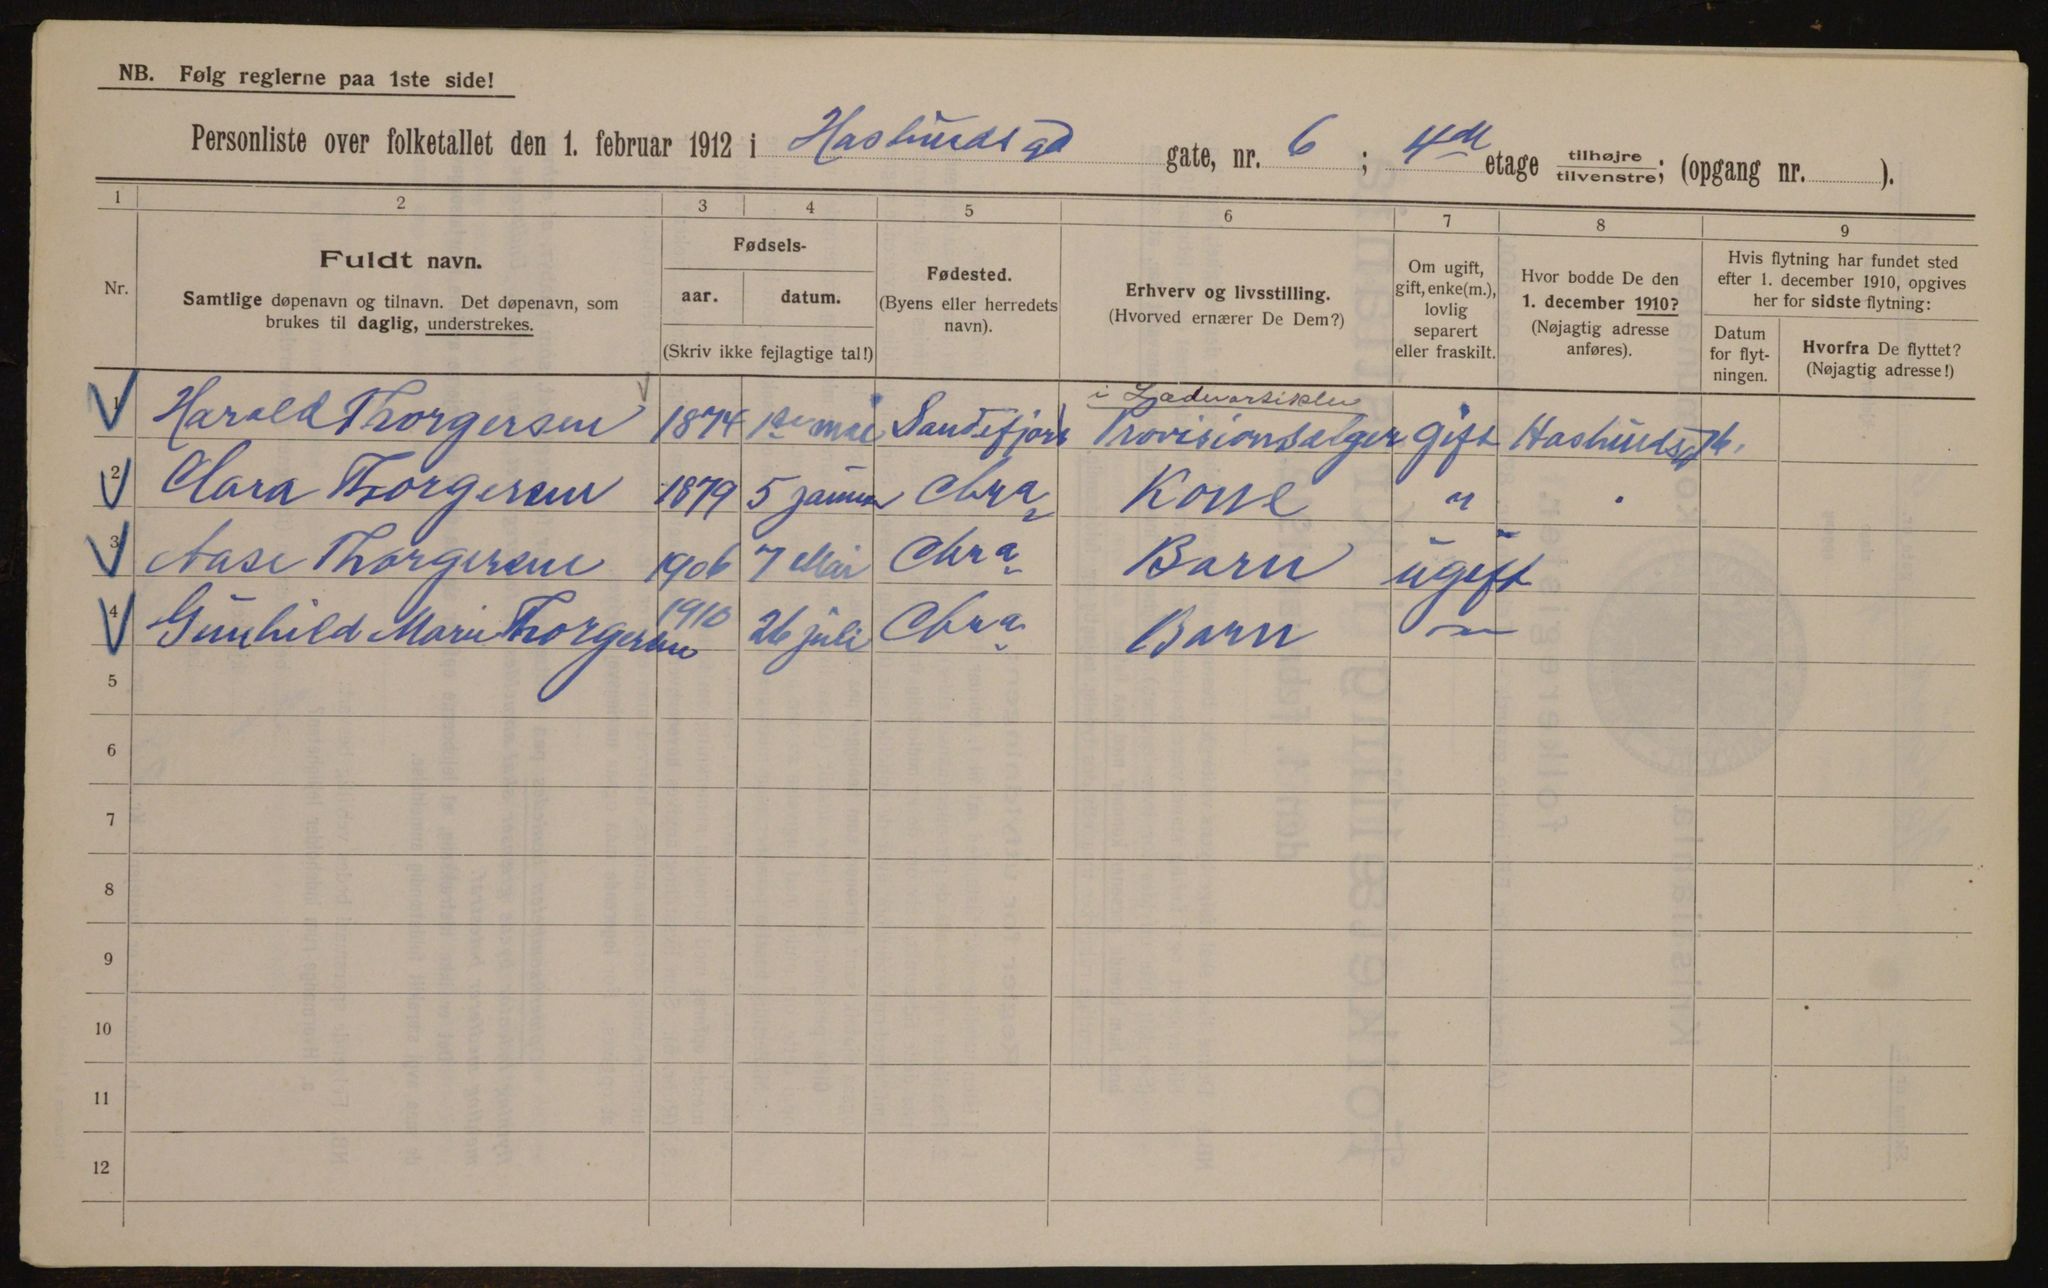 NB. Følg reglerne paa 1ste side!
Personliste over folketallet den 1. februar 1912 i Haslundsgd gate, nr. 6 ; 4de etage tilhøjre/tilvenstre; (opgang nr. ).
1 2 3 4 5 6 7 8 9
Nr.
Fuldt navn.
Samtlige døpenavn og tilnavn. Det døpenavn, som
brukes til daglig, understrekes.
Fødsels-
aar. datum.
(Skriv ikke fejlagtige tal!)
Fødested.
(Byens eller herredets
navn).
Erhverv og livsstilling.
(Hvorved ernærer De Dem?)
Om ugift,
gift, enke(m.),
lovlig
separert
eller fraskilt.
Hvor bodde De den
1. december 1910?
(Nøjagtig adresse
anføres).
Hvis flytning har fundet sted
efter 1. december 1910, opgives
her for sidste flytning:
Datum
for flyt-
ningen.
Hvorfra De flyttet?
(Nøjagtig adresse!)
i Lædervarsikler
1 Harald Thorgersen 1874 1ste mai Sandefjord Provisionsælger gift
2 Clara Thorgersen 1879 5 januar Chra Kone "
3 Aase Thorgersen 1906 7 Mai Chra Barn ugift
4 Gunhild Marie Thorgersen 1910 26 juli Chra Barn —"—
5
6
7
8
9
10
11
12